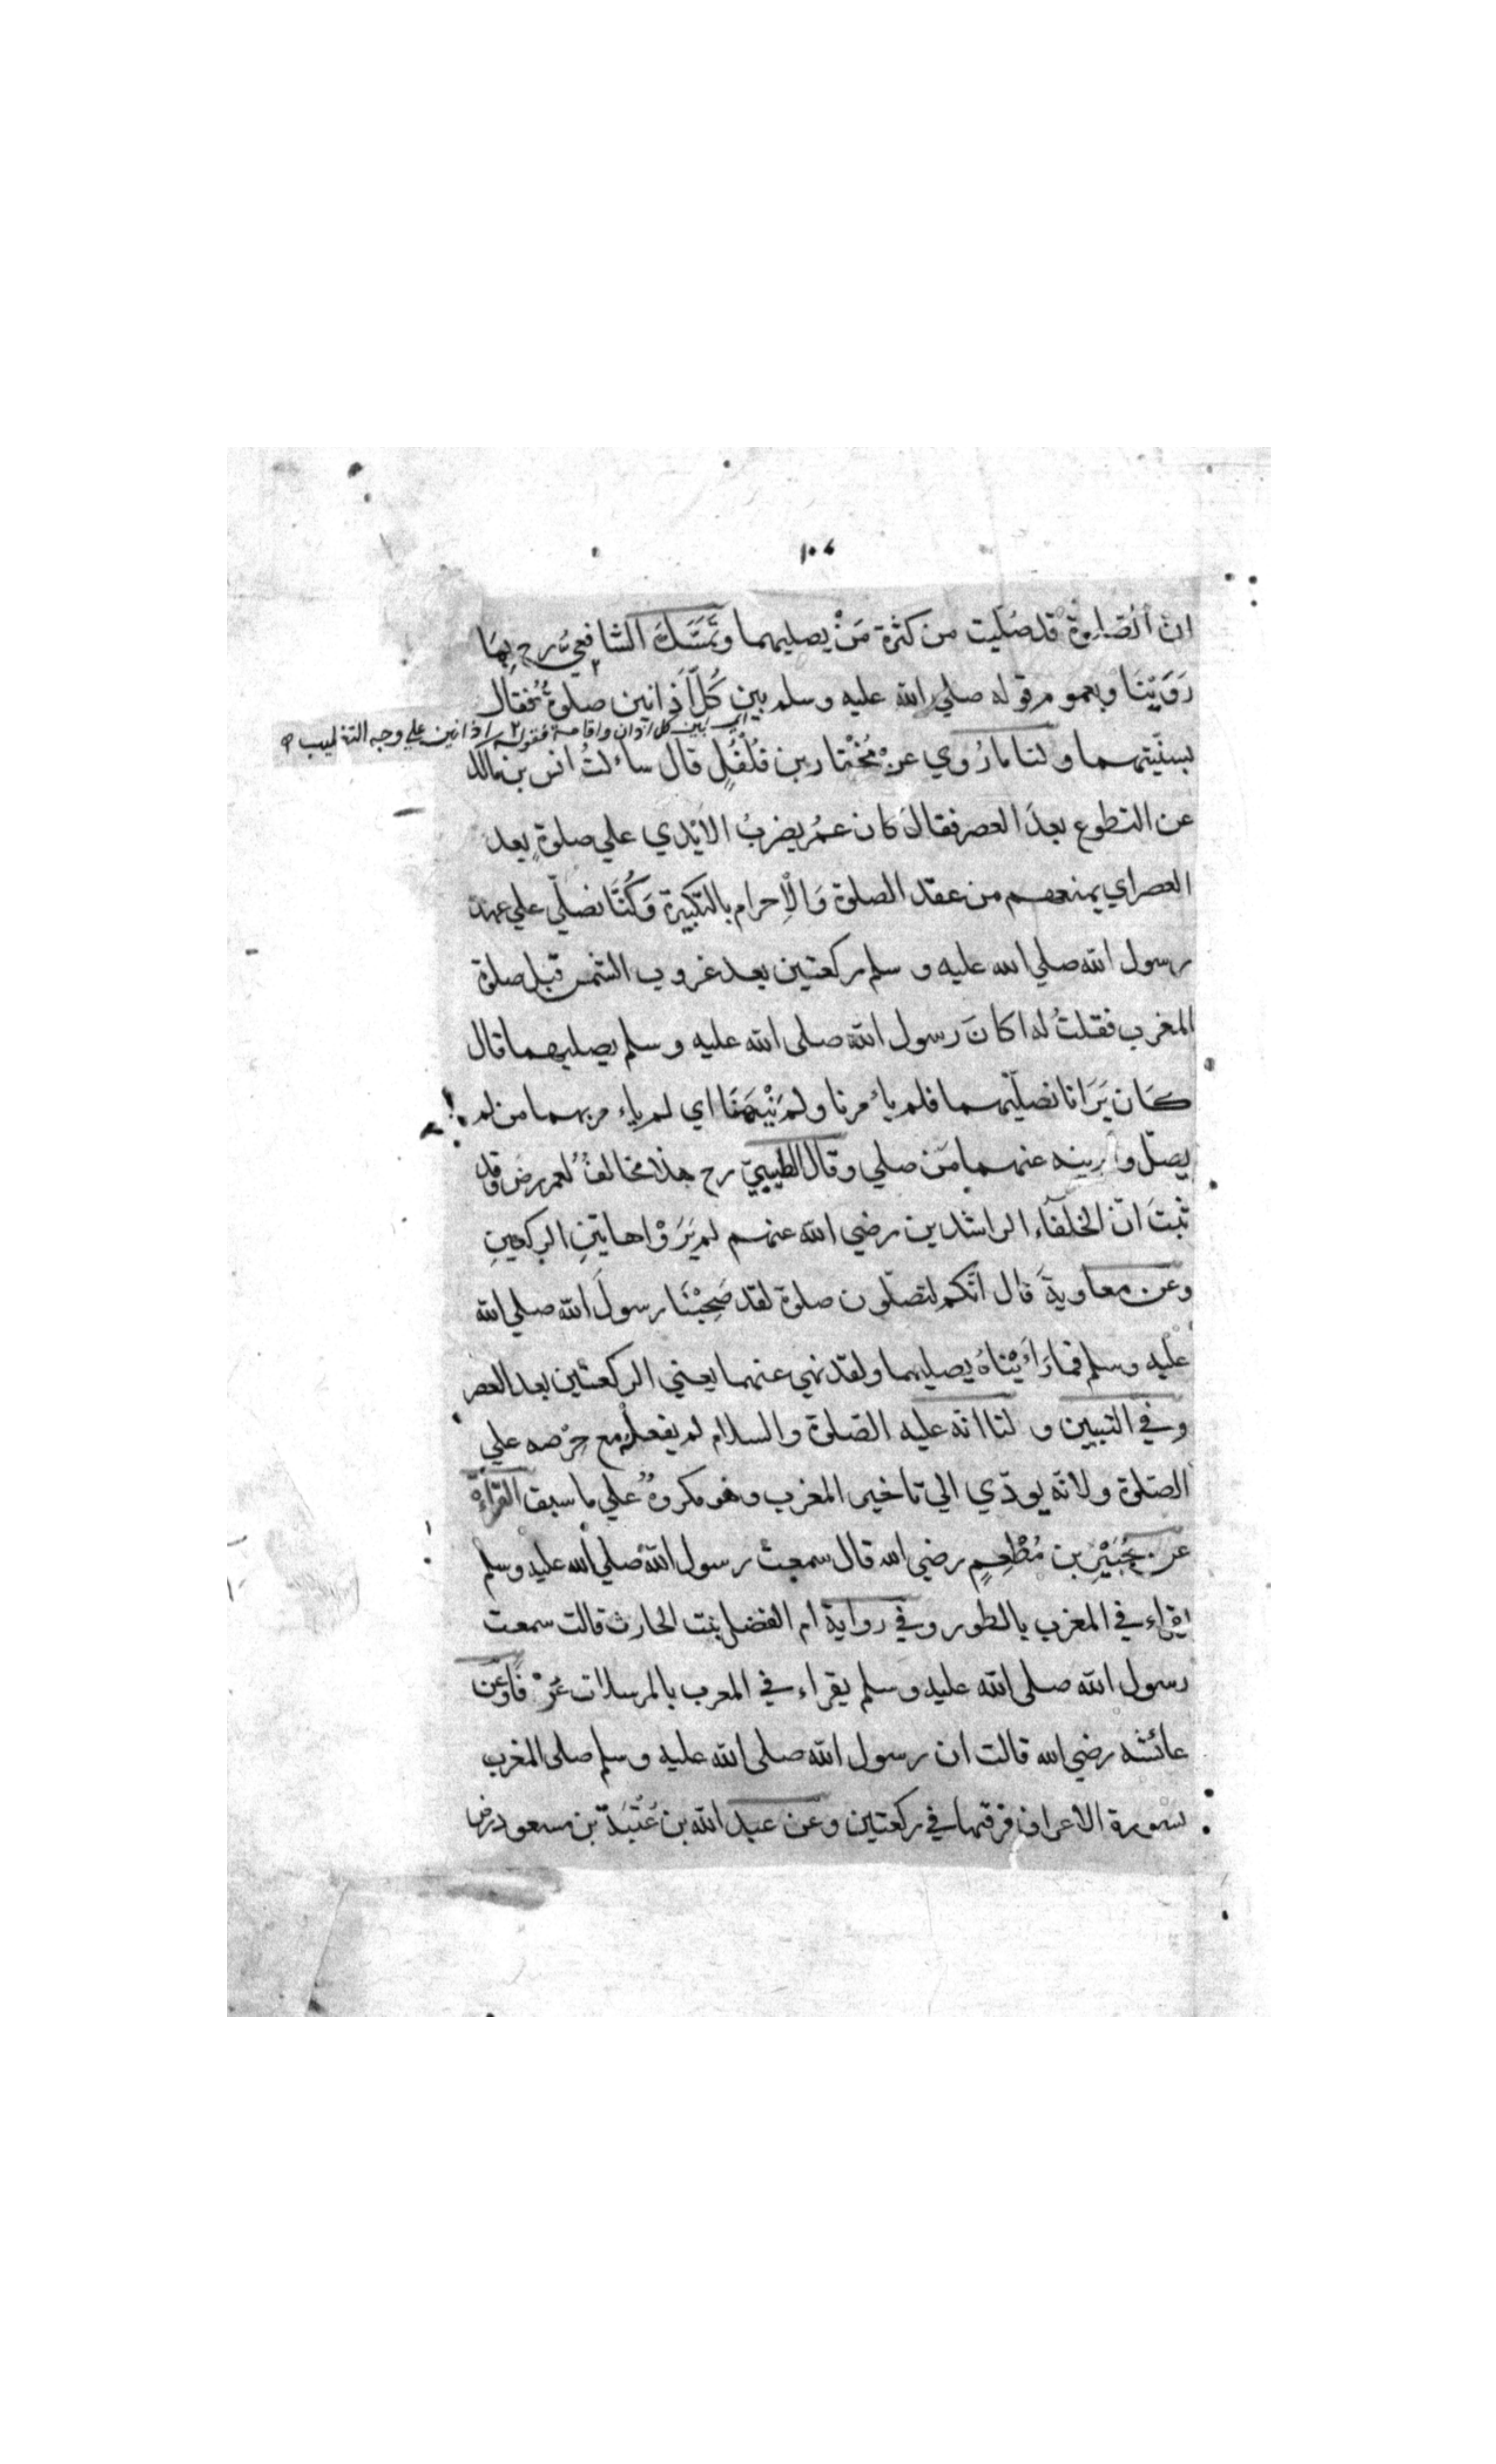 ١٠٤
ان الصلوة قد صُلّيت من كثرة مَنْ يصليهما وتمسّك الشافعيّ رح بِمَا
رَوَيْنا وبعموم قوله صلي الله عليه وسلم بين كُلّ اَذانين صلوةٌ فقال
اي بين كل اذان واقامة فقوله اذانين علي وجه التغليب
بسنّيتهما ولنا ما رُوي عن مُخْتار بن فُلْفُلٍ قال ساءلتُ انس بن مالك
عن التطوع بعدَ العصر فقالَ كان عمرُ يضربُ الاَيْدي علي صلوةٍ بعد
العصر اي يمنعهم من عقد الصلوة وَالْاِحرام بالتكبيرة وَكُنَّا نصلّي علي عهد
رسول الله صلي الله عليه وسلم ركعتين بعد غروب الشمس قبل صلوة
المغرب فقلتُ له اكانَ رسول الله صلى الله عليه وسلم يصليهما قال
كَان يَرَانا نصلّيهما فلم ياءمرنا ولم يَنْهَنَا اي لم ياءمر بهما من لم
يصلّ و ينه عنهما مَن صلي وقال الطيبيّ رح هذا مخالفٌ لعمر رض وقد
ثبتَ انّ الخلَفآء الراشدين رضي الله عنهم لم يَرَوْا هاتينِ الركعتينِ
وعن معاويةَ قال انّكم لتصلّون صلوة لقد صَحِبْنَا رسولَ الله صلي الله
عليه وسلم فما رَاَيْنَاهُ يصليهما ولقد نهي عنهما يعني الركعتين بعد العصر
وفي التبيين و لنا انّه عليه الصلوة والسلام لم يفعلْهُ مع حِرْصه علي
الصّلوة ولانّه يودّي الي تاخير المغرب وهو مكروهٌ علي ما سبق القراءة
عن جُبَيْرِ بن مُطْعِمٍ رضي الله قال سمعت رسول الله صلي الله عليه وسلم
يقراء في المغرب بالطور وفي رواية ام الفضل بنت الحارث قالت سمعت
رسول الله صلى الله عليه وسلم يقراء في المغرب بالمرسلات عُرْفًا وعَن
عائشه رضي الله قالت ان رسول الله صلى الله عليه وسلم صلى المغرب
بسورة الاعراف فرقها في ركعتين وعن عبد الله بن عُتْبَةَ بن مسعود رض